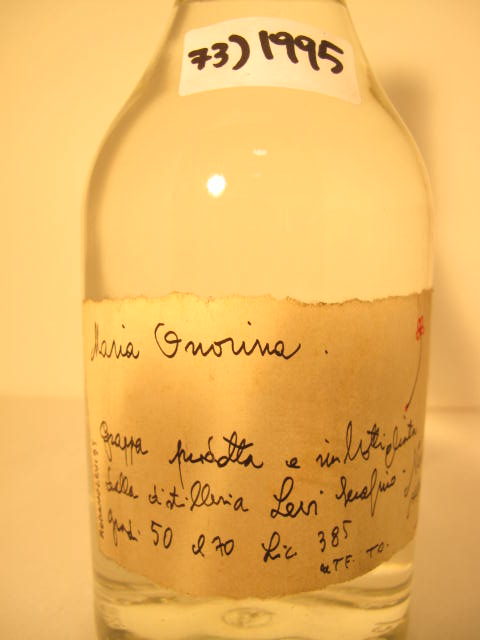 73) 1995
Maria Onorina .
Grappa prodotta e imbottigliata
dalla distilleria Levi Serafino.
gradi 50 cl 70 Lic 385
UTF. TO.